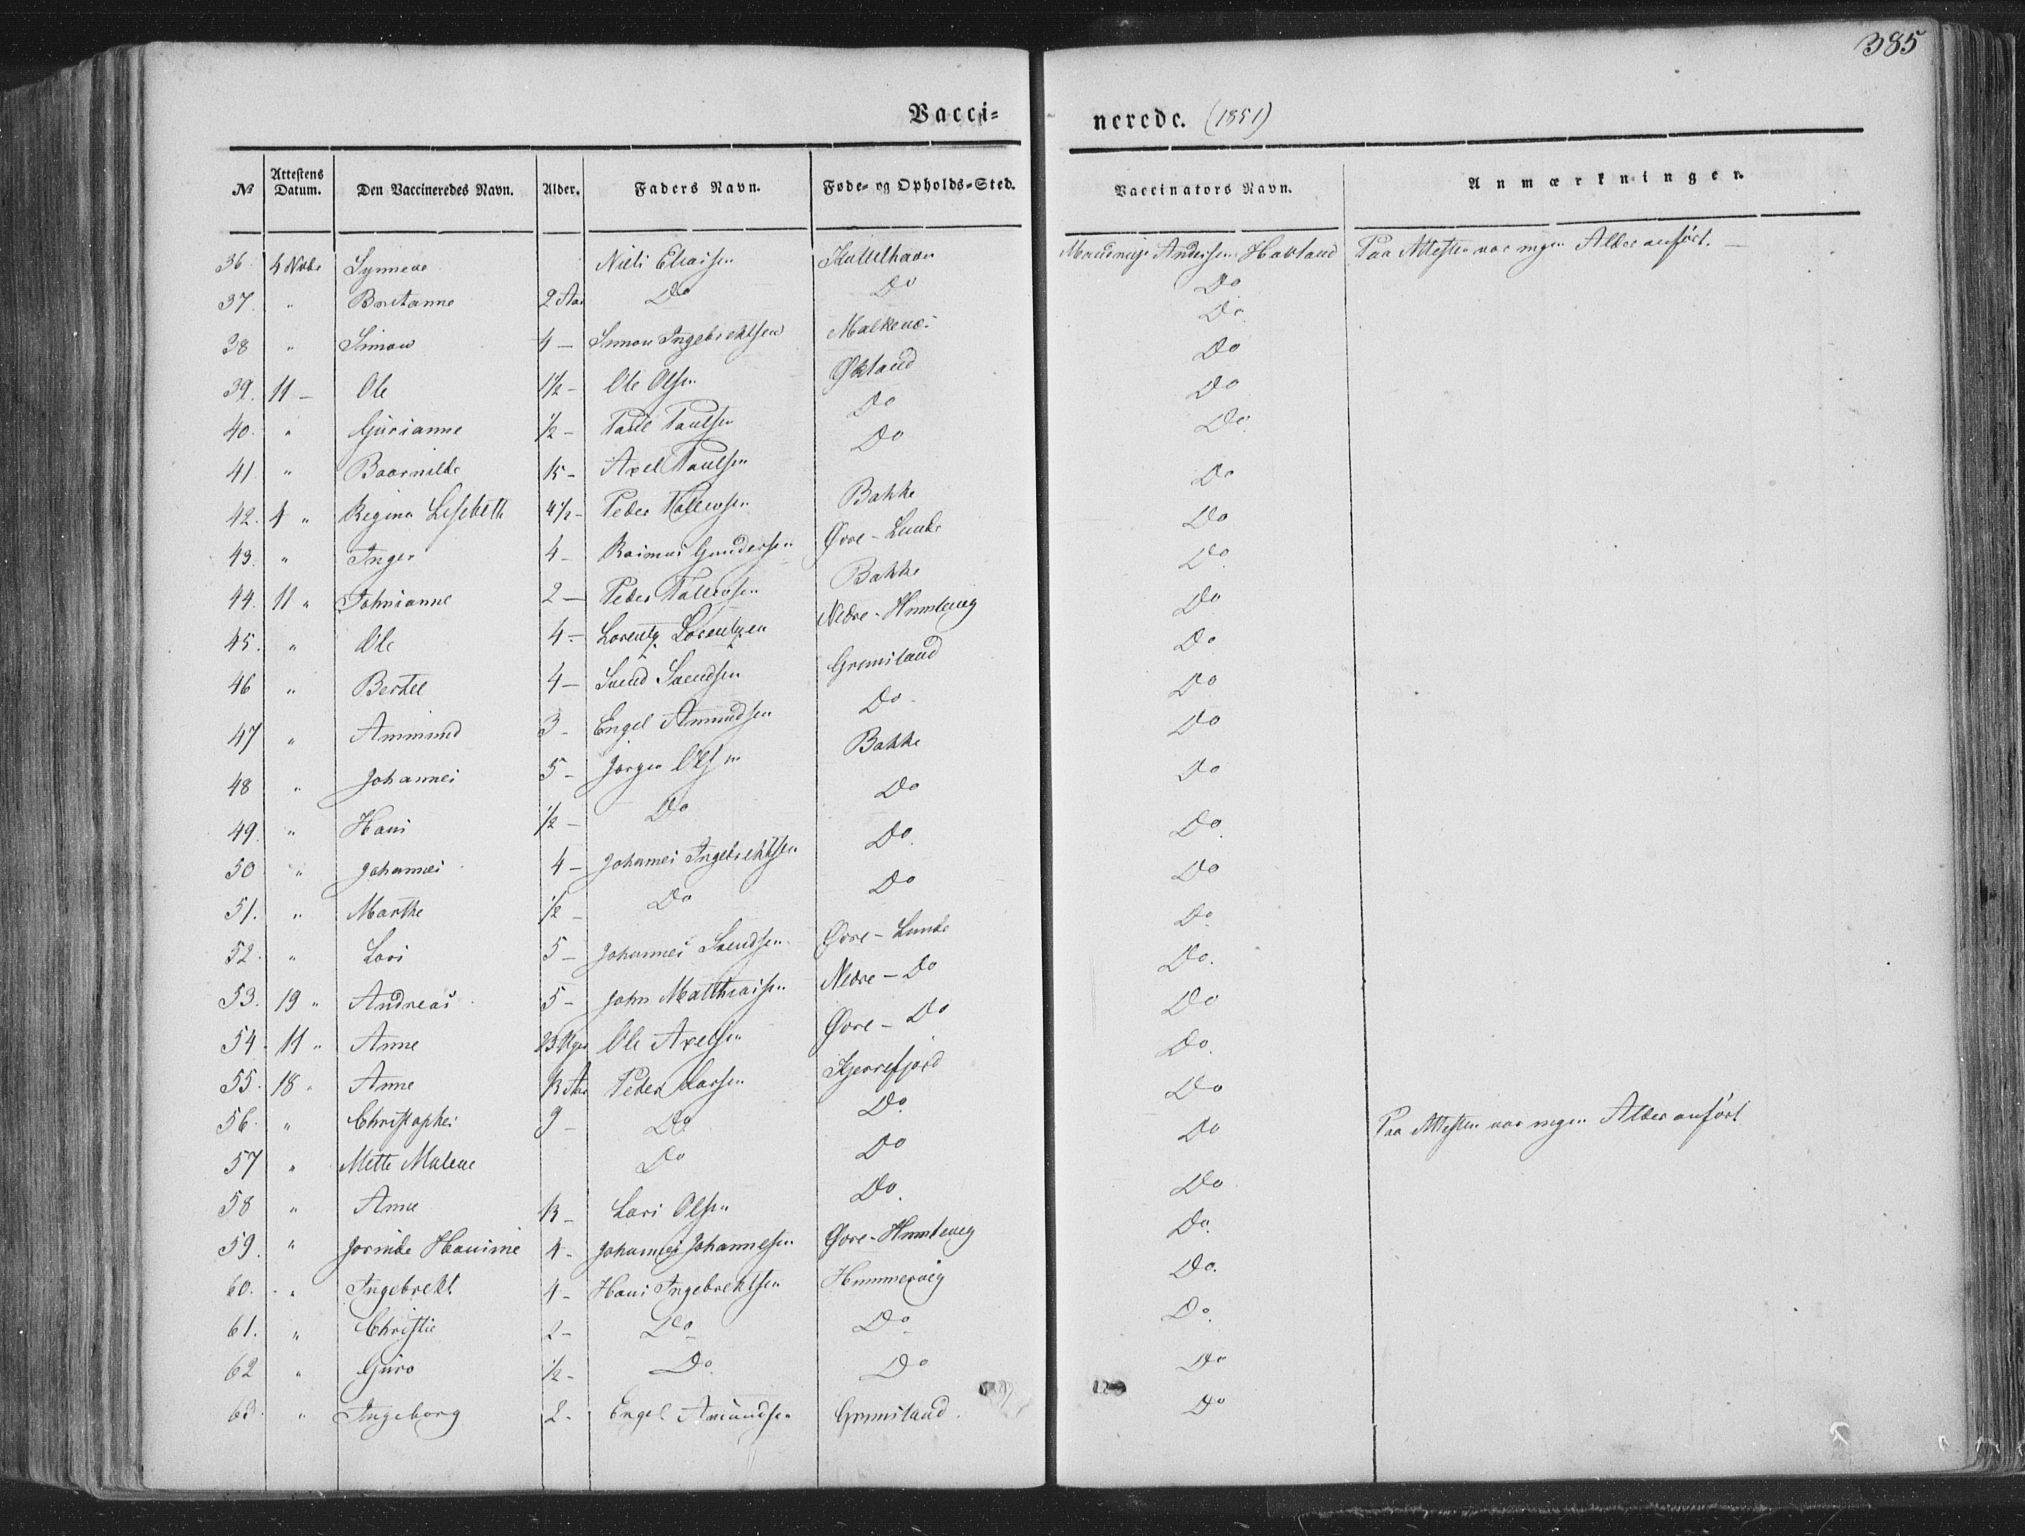 385
Vacci- nerede. (1851)
№ Attestens Datum. Den Vaccineredes Navn. Alder. Faders Navn. Føde- og Opholds-Sted. Vaccinators Navn. Anmærkninger.
36 4 Novbr Synneve Niels Eliassen Andersen Hovland Paa Attesten var ingen Alder anført. —
37. " Beritanne 2 Aar Do Do Do
38 " Simon 4 — Simon Ingebrektsen Do
39. 11 — Ole 1½ - Ole Olsen Økland Do
40. " Gurianne ½ - Paul Paulsen Do Do
41. " Baarnilde Axel Paulsen Do Do
42. 4 " Regina Lisebeth 4½ - Peder Tollevsen Bakke Do
43. " Inger 4 - Rasmus Gundersen Øvre - Lunde Do
44. 11 " Johnianne 2 — Peder Tollevsen Bakke Do
45. " Ole 4 - Lorentz Lorentzen Nedre - Do
46 " Bertel 4 — Svend Svendsen Grønsland Do
47 " Ammund 3 - Engel Amundsen Do - Do
48 " Johannes 5 - Jørgen Olsen Bakke Do
49. " Hans ½ - Do Do Do
50 " Johannes 4 - Johannes Ingebrektsen Do. Do
51. " Marthe ½ - Do Do Do
52. " Lars 5 - Johannes Svendsen Øvre - Lunde Do.
53. 19 " Andreas 5 - John Matthiassen Nedre - Do Do
54. 11 " Anne Ole Axelsen Øvre - Do Do.
55. 18 " Anne Peder Larsen Kjerrefjord Do
56. " Christopher 9 - Do Do. Do Paa Attesten var ingen Alder anført
57 " Mette Malene Do Do Do
58 " Anne Lars Olsen Do. Do.
59. " Jorinde Hansine 4 - Johannes Johannesen Øvre - Do.
60. " Ingebrekt 4 - Hans Ingebrektsen Hummervig Do.
61. " Christie 2 - Do Do
62 " Guro ½ - Do Do Do
63. " Ingeborg 2 - Engel Amundsen Grønsland. Do